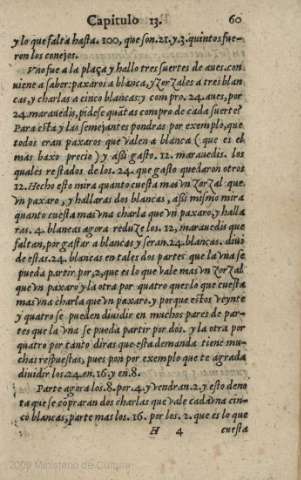 Capitulo 13. 60
y lo que falta hasta. 100, que son. 21. y. 3. quintos fue-
ron los conejos.
Vno fue a la plaça y hallo tres suertes de aues. con
uiene a saber: paxaros a blanca, y zorzales a tres blan
cas, y charlas a cinco blancas; y compro. 24. aues, por
24. marauedis, pidese quãtas compro de cada suerte?
Para esta y las semejantes pondras por exemplo, que
todos eran paxaros que valen a blanca (que es el
mas baxo precio) y assi gasto. 12. marauedis. los
quales restados de los. 24. que gasto quedaron otros
12. Hecho esto mira quanto cuesta mas vn zorzal que.
vn paxaro, y hallaras dos blancas, assi mismo mira
quanto cuesta mas vna charla que vn paxaro, y halla
ras. 4. blancas agora reduze los. 12, marauedis que
faltan, por gastar a blancas y seran. 24. blancas. diui
de estas. 24. blancas en tales dos partes que la vna se
pueda partir por, 2, que es lo que vale mas vn zorzal
que vn paxaro y la otra por quatro que es lo que cuesta
mas vna charla que vn paxaro. y por que estos veynte
y quatro se pueden diuidir en muchos pares de par-
tes que la vna se pueda partir por dos. y la otra por
quatro por tanto diras que esta demanda tiene mu-
chas respuestas, pues pon por exemplo que te agrada
diuidir los. 24. en. 16. y en 8.
Parte agora los. 8. por. 4. y vendran. 2. y esto deno
ta que se cõpraran dos charlas que vale cada vna cin-
co blancas, parte mas los. 16. por los. 2. que es lo que
H 4 cuesta
2009 Ministerio de Cultura